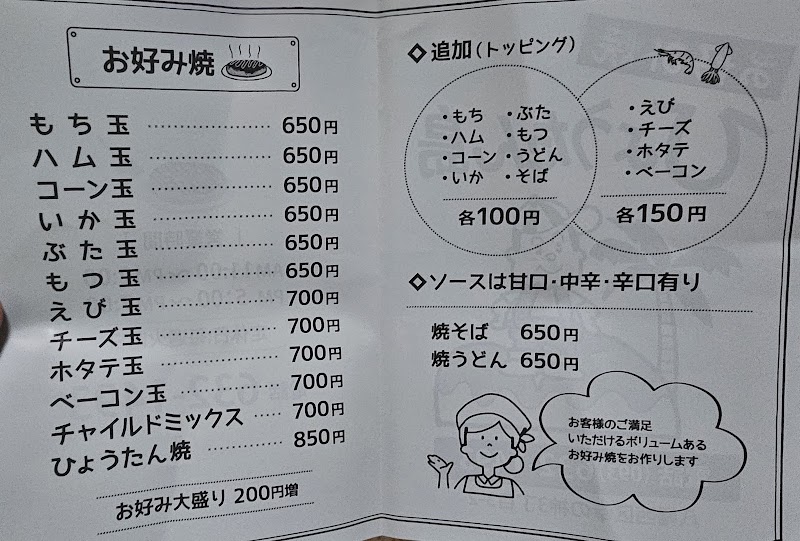 お好み焼
もち玉 650円
ハム玉 650円
コーン玉 650円
いか玉 650円
ぶた玉 650円
もつ玉 650円
えび玉 700円
チーズ玉 700円
ホタテ玉 700円
ベーコン玉 700円
チャイルドミックス 700円
ひょうたん焼 850円
お好み大盛り 200円増
◇追加(トッピング)
・もち ・ぶた
・ハム ・もつ
・コーン ・うどん
・いか ・そば
各100円
・えび
・チーズ
・ホタテ
・ベーコン
各150円
◇ソースは甘口・中辛・辛口有り
焼そば 650円
焼うどん 650円
お客様のご満足
いただけるボリュームある
お好み焼をお作りします